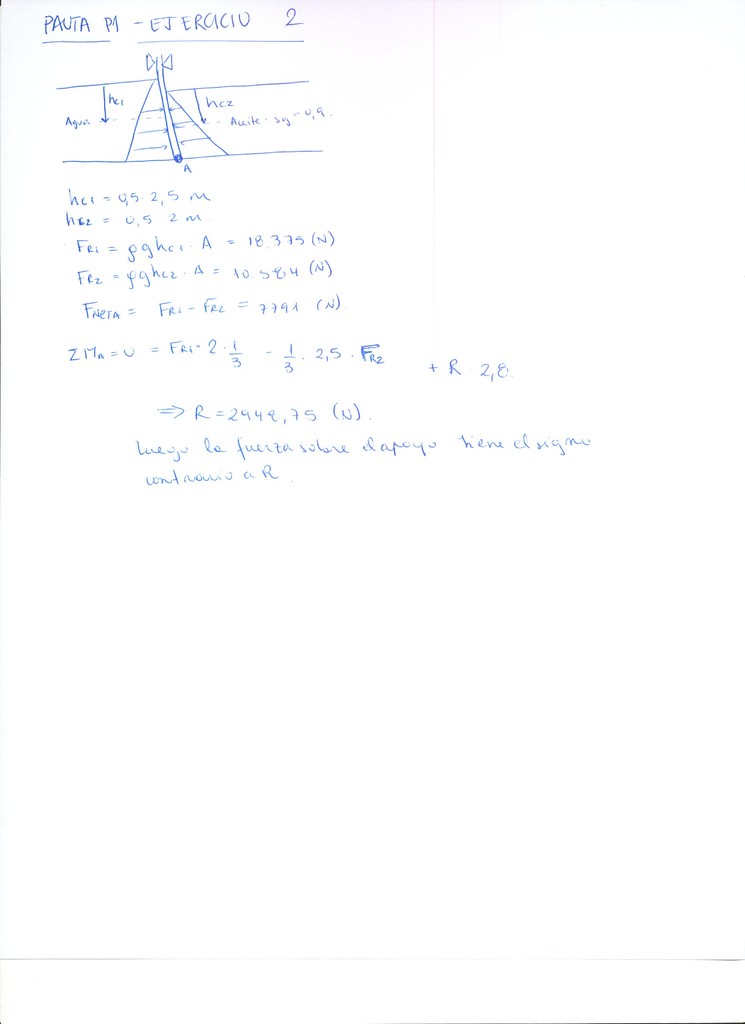 PAUTA P1 - EJERCICIO 2
hc1
hc2
Agua
Aceite: sg = 0,9.
A
hc1 = 0,5 · 2,5 m
hc2 = 0,5 2 m.
FR1 = ρghc1 · A = 18.375 (N)
FR2 = ρghc2 · A = 10.584 (N)
FNETA = FR1 - FR2 = 7791 (N)
ΣMA = 0 = FR1 · 2 · 1/3 - 1/3 · 2,5 · FR2 + R · 2,8.
⇒ R = 2948,75 (N).
Luego la fuerza sobre el apoyo tiene el signo
contrario a R.